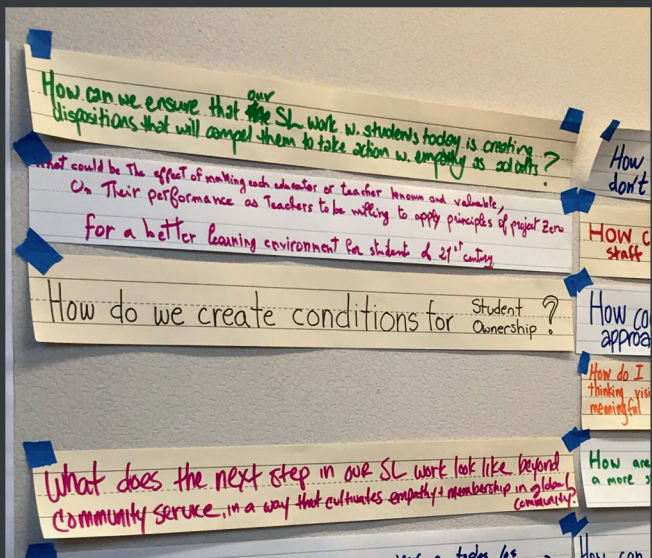 How can we ensure that our SL work w. students today is creating
dispositions that will compel them to take action w. empathy as adults?
What could be The effect of making each educator or teacher known and valuable,
On Their performance as Teachers to be willing to apply principles of project Zero
for a better learning environment for students of 21st century
How do we create conditions for Student
Ownership?
What does the next step in our SL work look like beyond
community service, in a way that cultivates empathy + membership in global
community?
How
don't
How c
staff
How co
approa
How do I
thinking visi
meaningful
How are
a more s
a todos los
How can